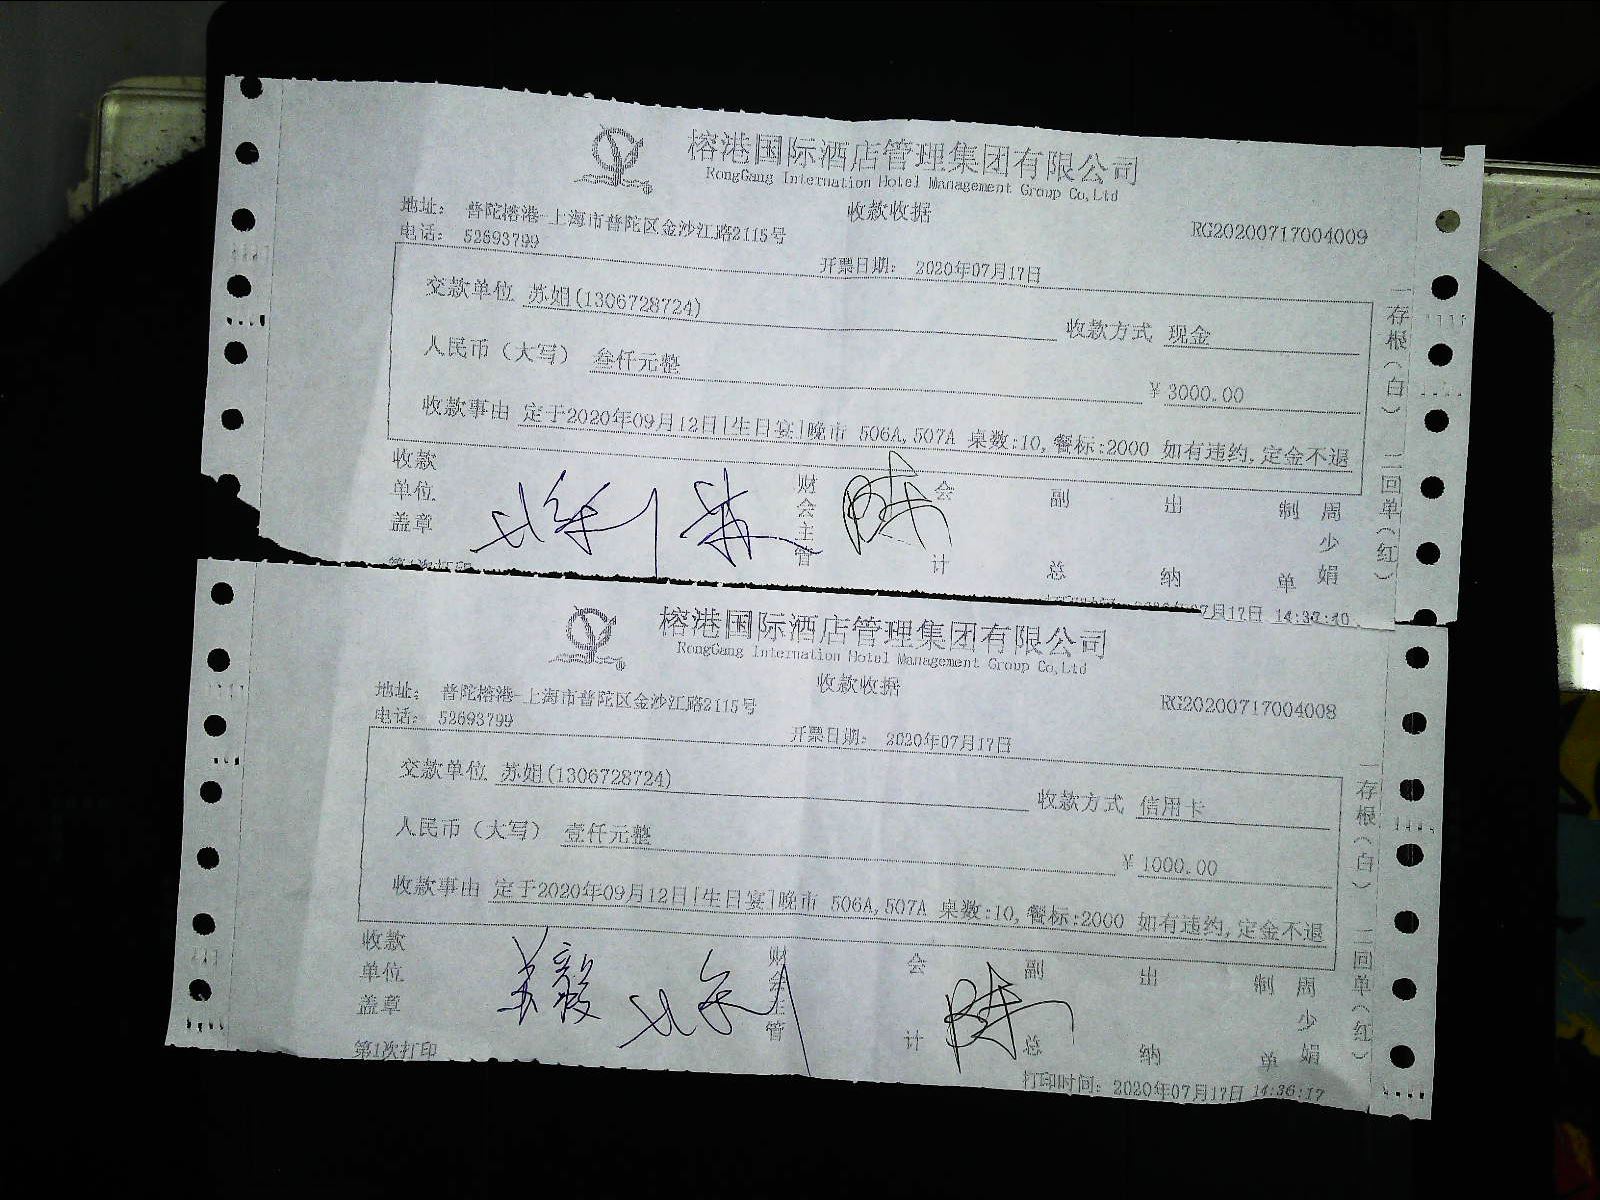 榕港国际酒店管理集团有限公司
RongGang Internation Hotel Management Group Co,Ltd
收款收据
地址： 普陀榕港-上海市普陀区金沙江路2115号
电话： 52693799
RG20200717004009
开票日期： 2020年07月17日
交款单位 苏姐(1306728724)
收款方式 现金
人民币（大写） 叁仟元整
￥3000.00
收款事由 定于2020年09月12日[生日宴]晚市 506A,507A 桌数:10,餐标:2000 如有违约,定金不退
收款单位盖章
财会主管
会计
副总
出纳
制单
周少娟
一存根（白） 二回单（红）
第1次打印
打印时间： 2020年07月17日 14:37:40
榕港国际酒店管理集团有限公司
RongGang Internation Hotel Management Group Co,Ltd
收款收据
地址： 普陀榕港-上海市普陀区金沙江路2115号
电话： 52693799
RG20200717004008
开票日期： 2020年07月17日
交款单位 苏姐(1306728724)
收款方式 信用卡
人民币（大写） 壹仟元整
￥1000.00
收款事由 定于2020年09月12日[生日宴]晚市 506A,507A 桌数:10,餐标:2000 如有违约,定金不退
收款单位盖章
财会主管
会计
副总
出纳
制单
周少娟
一存根（白） 二回单（红）
第1次打印
打印时间： 2020年07月17日 14:36:17